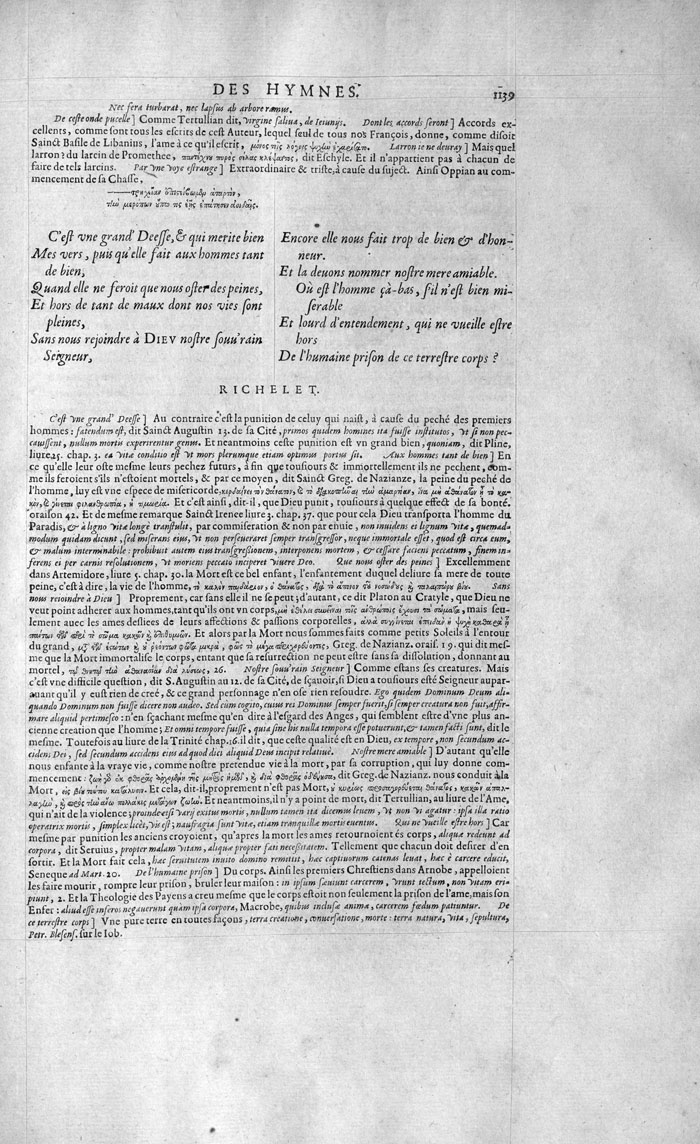 DES HYMNES. 1139
Nec fera turbarat, nec lapsus ab arbore ramus.
De ceste onde pucelle] Comme Tertullian dit, virgine saliua, de Ieiunijs. Dont les accords seront] Accords ex-
cellents, comme sont tous les escrits de cest Auteur, lequel seul de tous nos François, donne, comme disoit
Sainct Basile de Libanius, l'ame à ce qu'il escrit, Larron ie ne deuray] Mais quel
larron? du larcin de Promethee, dit Eschyle. Et il n'appartient pas à chacun de
faire de tels larcins. Par vne voye estrange] Extraordinaire & triste, à cause du suject. Ainsi Oppian au com-
mencement de sa Chasse,
C'est vne grand' Deesse, & qui merite bien
Mes vers, puis qu'elle fait aux hommes tant
de bien,
Quand elle ne feroit que nous oster des peines,
Et hors de tant de maux dont nos vies sont
pleines,
Sans nous rejoindre à DIEV nostre souu'rain
Seigneur,
Encore elle nous fait trop de bien & d'hon-
neur.
Et la deuons nommer nostre mere amiable.
Où est l'homme çà-bas, s'il n'est bien mi-
serable
Et lourd d'entendement, qui ne vueille estre
hors
De l'humaine prison de ce terrestre corps?
RICHELET.
C'est vne grand' Deesse] Au contraire c'est la punition de celuy qui naist, à cause du peché des premiers
hommes: fatendum est, dit Sainct Augustin 13. de sa Cité, primos quidem homines ita fuisse institutos, vt si non pec-
cauissent, nullum mortis experirentur genus. Et neantmoins ceste punition est vn grand bien, quoniam, dit Pline,
liure 25. chap. 3. ea vitæ conditio est vt mors plerumque etiam optimus portus sit. Aux hommes tant de bien] En
ce qu'elle leur oste mesme leurs pechez futurs, à fin que tousiours & immortellement ils ne pechent, comme
ils feroient s'ils n'estoient mortels, & par ce moyen, dit Sainct Greg. de Nazianze, la peine du peché de
l'homme, luy est vne espece de misericorde,
Et c'est ainsi, dit-il, que Dieu punit, tousiours à quelque effect de sa bonté.
oraison 42. Et de mesme remarque Sainct Irenee liure 3. chap. 37. que pour cela Dieu transporta l'homme du
Paradis, & à ligno vitæ longè transtulit, par commiseration & non par enuie, non inuidens ei lignum vitæ, quemad-
modum quidam dicunt, sed miserans eius, vt non perseueraret semper transgressor, neque immortale esset, quod est circa eum,
& malum interminabile: prohibuit autem eius transgressionem, interponens mortem, & cessare faciens peccatum, finem in-
ferens ei per carnis resolutionem, vt moriens peccato inciperet viuere Deo. Que nous oster des peines] Excellemment
dans Artemidore, liure 5. chap. 30. la Mort est ce bel enfant, l'enfantement duquel deliure sa mere de toute
peine, c'est à dire, la vie de l'homme, Sans
nous reioindre à Dieu] Proprement, car sans elle il ne se peut; d'autant, ce dit Platon au Cratyle, que Dieu ne
veut point adherer aux hommes, tant qu'ils ont vn corps, mais seu-
lement auec les ames dessiees de leurs affections & passions corporelles,
Et alors par la Mort nous sommes faits comme petits Soleils à l'entour
du grand, Greg. de Nazianz. orais. 19. qui dit mes-
me que la Mort immortalise le corps, entant que sa resurrection ne peut estre sans sa dissolution, donnant au
mortel, 26. Nostre souu'rain Seigneur] Comme estans ses creatures. Mais
c'est vne difficile question, dit S. Augustin au 12. de sa Cité, de sçauoir, si Dieu a tousiours esté Seigneur aupar-
auant qu'il y eust rien de creé, & ce grand personnage n'en ose rien resoudre. Ego quidem Dominum Deum ali-
quando Dominum non fuisse dicere non audeo. Sed cum cogito, cuius rei Dominus semper fuerit, si semper creatura non fuit, affir-
mare aliquid pertimesco: n'en sçachant mesme qu'en dire à l'esgard des Anges, qui semblent estre d'vne plus an-
cienne creation que l'homme; Et omni tempore fuisse, quia sine his nulla tempora esse potuerunt, & tamen facti sunt, dit le
mesme. Toutefois au liure de la Trinité chap. 16. il dit, que ceste qualité est en Dieu, ex tempore, non secundum ac-
cidens Dei, sed secundum accidens eius ad quod dici aliquid Deus incipit relatiuè. Nostre mere amiable] D'autant qu'elle
nous enfante à la vraye vie, comme nostre pretendue vie à la mort, par sa corruption, qui luy donne com-
mencement: dit Greg. de Nazianz. nous conduit à la
Mort, Et cela, dit-il, proprement n'est pas Mort,
Et neantmoins, il n'y a point de mort, dit Tertullian, au liure de l'Ame,
qui n'ait de la violence; proinde etsi varij exitus mortis, nullum tamen ita dicemus leuem, vt non vi agatur: ipsa illa ratio
operatrix mortis, simplex licet, vis est; naufragia sunt vitæ, etiam tranquillæ mortis euentus. Qui ne vueille estre hors] Car
mesme par punition les anciens croyoient, qu'apres la mort les ames retournoient és corps, aliquæ redeunt ad
corpora, dit Seruius, propter malam vitam, aliquæ propter fati necessitatem. Tellement que chacun doit desirer d'en
sortir. Et la Mort fait cela, hæc seruitutem inuito domino remittit, hæc captiuorum catenas leuat, hæc è carcere educit,
Seneque ad Mart. 20. De l'humaine prison] Du corps. Ainsi les premiers Chrestiens dans Arnobe, appelloient
les faire mourir, rompre leur prison, brusler leur maison: in ipsum sæuiunt carcerem, vrunt tectum, non vitam eri-
piunt, 2. Et la Theologie des Payens a creu mesme que le corps estoit non seulement la prison de l'ame, mais son
Enfer: aliud esse inferos negauerunt quàm ipsa corpora, Macrobe, quibus inclusæ animæ, carcerem fœdum patiuntur. De
ce terrestre corps] Vne pure terre en toutes façons, terra creatione, conuersatione, morte: terra natura, vita, sepultura,
Petr. Blesens. sur le Iob.